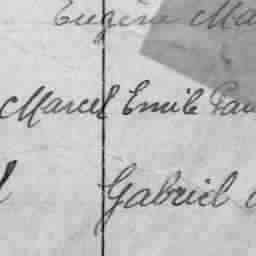 Eugène Ma
Marcel Emile Pau
Gabriel